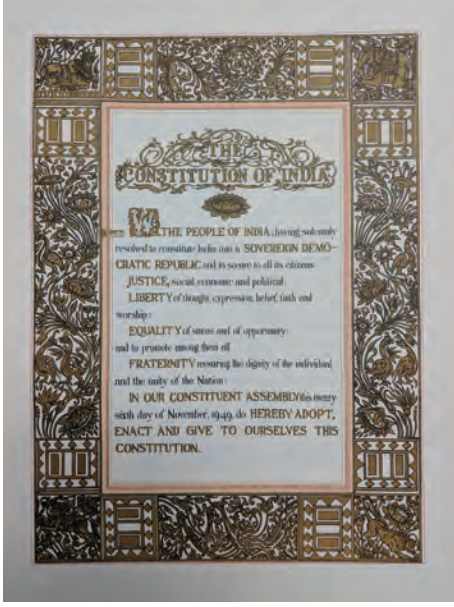 THE
CONSTITUTION OF INDIA
WE, THE PEOPLE OF INDIA, having solemnly
resolved to constitute India into a SOVEREIGN DEMO-
CRATIC REPUBLIC and to secure to all its citizens:
JUSTICE, social, economic and political;
LIBERTY of thought, expression, belief, faith and
worship;
EQUALITY of status and of opportunity;
and to promote among them all
FRATERNITY assuring the dignity of the individual
and the unity of the Nation;
IN OUR CONSTITUENT ASSEMBLY this twenty
sixth day of November, 1949, do HEREBY ADOPT,
ENACT AND GIVE TO OURSELVES THIS
CONSTITUTION.